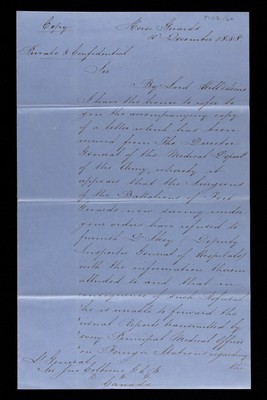 Copy
Horse Guards
10 December 1838
Private & Confidential
Sir
By Lord Hill's desire
I have the honor to refer to
you the accompanying copy
of a letter which has been
received from The Director
General of the Medical Depart
of the Army, whereby it
appears that the Surgeons
of the Battalions of Foot
Guards now serving under
your orders have refused to
furnish Dr Skey "Deputy
Inspector General of Hospitals
with the information therein
alluded to and that in
consequence of such Refusal
"he is unable to forward the
"usual Reports transmitted by
"every Principal Medical Officer
"on Foreign Stations regarding
Lt General
Sir Jno Colborne
Canada
the